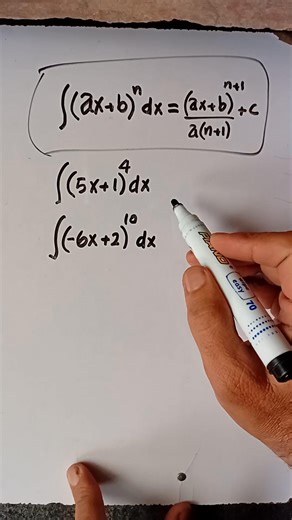 ∫(ax+b)^n dx = (ax+b)^(n+1) / a(n+1) + c
∫(5x+1)^4 dx
∫(-6x+2)^10 dx
easy
70